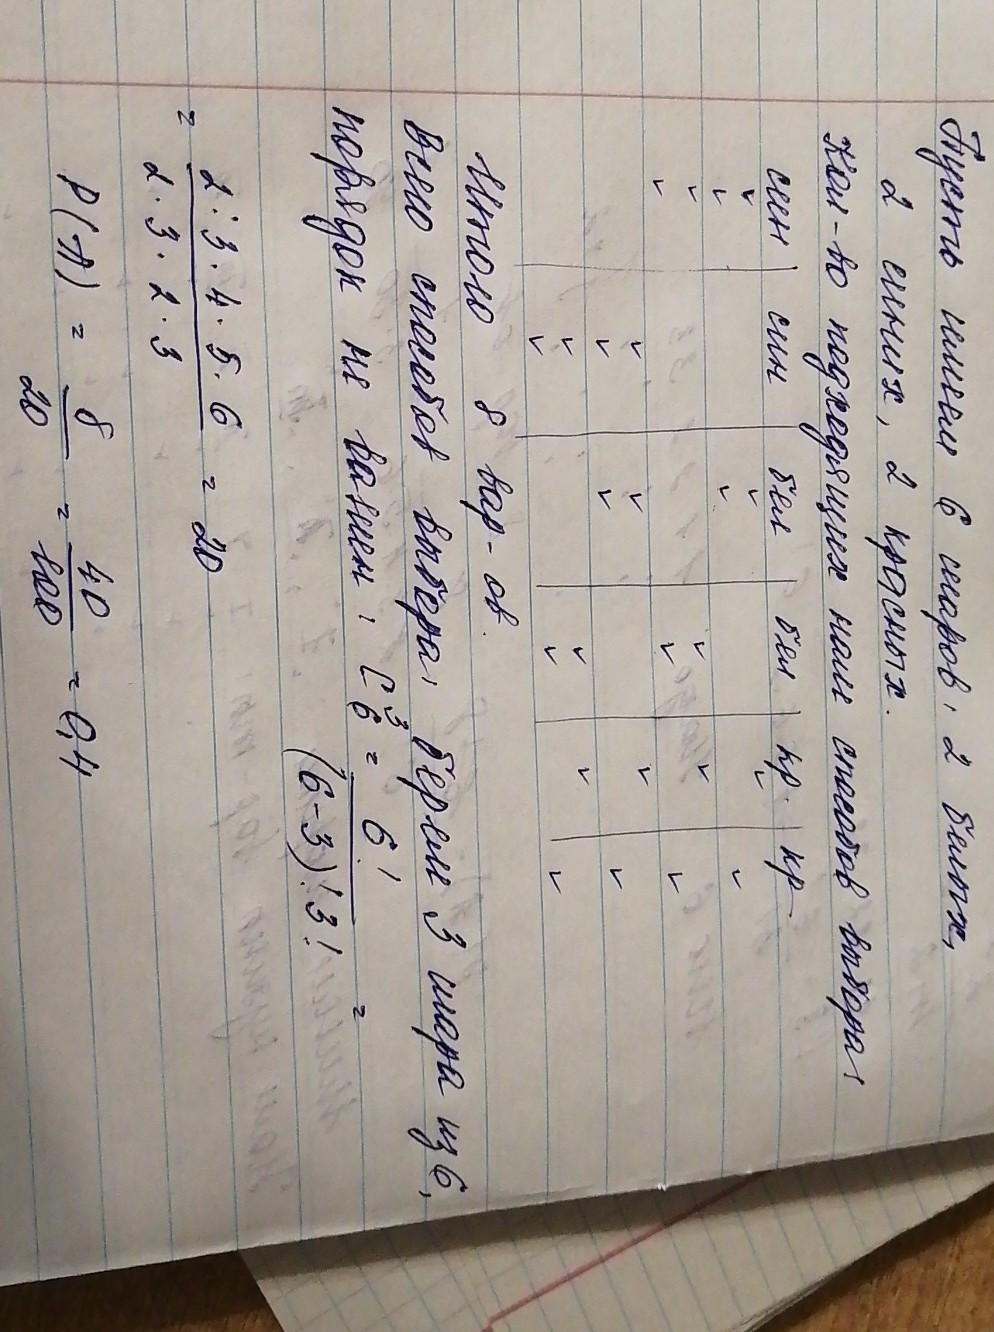 Пусть имеем 6 шаров, 2 белых,
2 синих, 2 красных.
Кол-во подходящих нам способов выбора:
син син бел бел кр. кр.
✓ ✓ ✓
✓ ✓ ✓
✓ ✓ ✓
✓ ✓ ✓
✓ ✓ ✓
✓ ✓ ✓
✓ ✓ ✓
✓ ✓ ✓
Итого 8 вар-ов.
Всего способов выбора, берем 3 шара из 6,
порядок не важен, C₆³ = 6! / (6-3)! 3! =
= 2·3·4·5·6 / 2·3·2·3 = 20
P(A) = 8/20 = 40/100 = 0,4